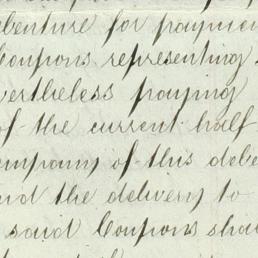 benture for paymen
Coupons representing
ertheless paying
of the current half
ompany of this debe
nd the delivery to
said Coupons shal